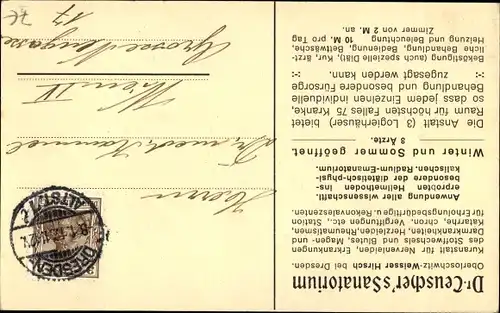 Dr. Teuscher's Sanatorium
Oberloschwitz-Weisser Hirsch bei Dresden
Kuranstalt für Nervenleiden, Erkrankungen
des Stoffwechsels und Blutes, Magen- und
Darmkrankheiten, Herzleiden, Rheumatismen,
Katarrhe, chron. Vergiftungen etc., Station
für Erholungsbedürftige u. Rekonvaleszenten.
Anwendung aller wissenschaftl.
erprobten Heilmethoden ins-
besondere der diätetisch-physi-
kalischen. Radium-Emanatorium.
Winter und Sommer geöffnet.
3 Ärzte.
Die Anstalt (3 Logierhäuser) bietet
Raum für höchsten Falles 75 Kranke,
so dass jedem Einzelnen individuelle
Behandlung und besondere Fürsorge
zugesagt werden kann.
Beköstigung (auch spezielle Diät), Kur, ärzt-
liche Behandlung, Bedienung, Bettwäsche,
Heizung und Beleuchtung 10 M. pro Tag
Zimmer von 2 M. an.
Herrn
Dr. med.
Wien IV
Grosse Neugasse
17
DRESDEN
ALTST.